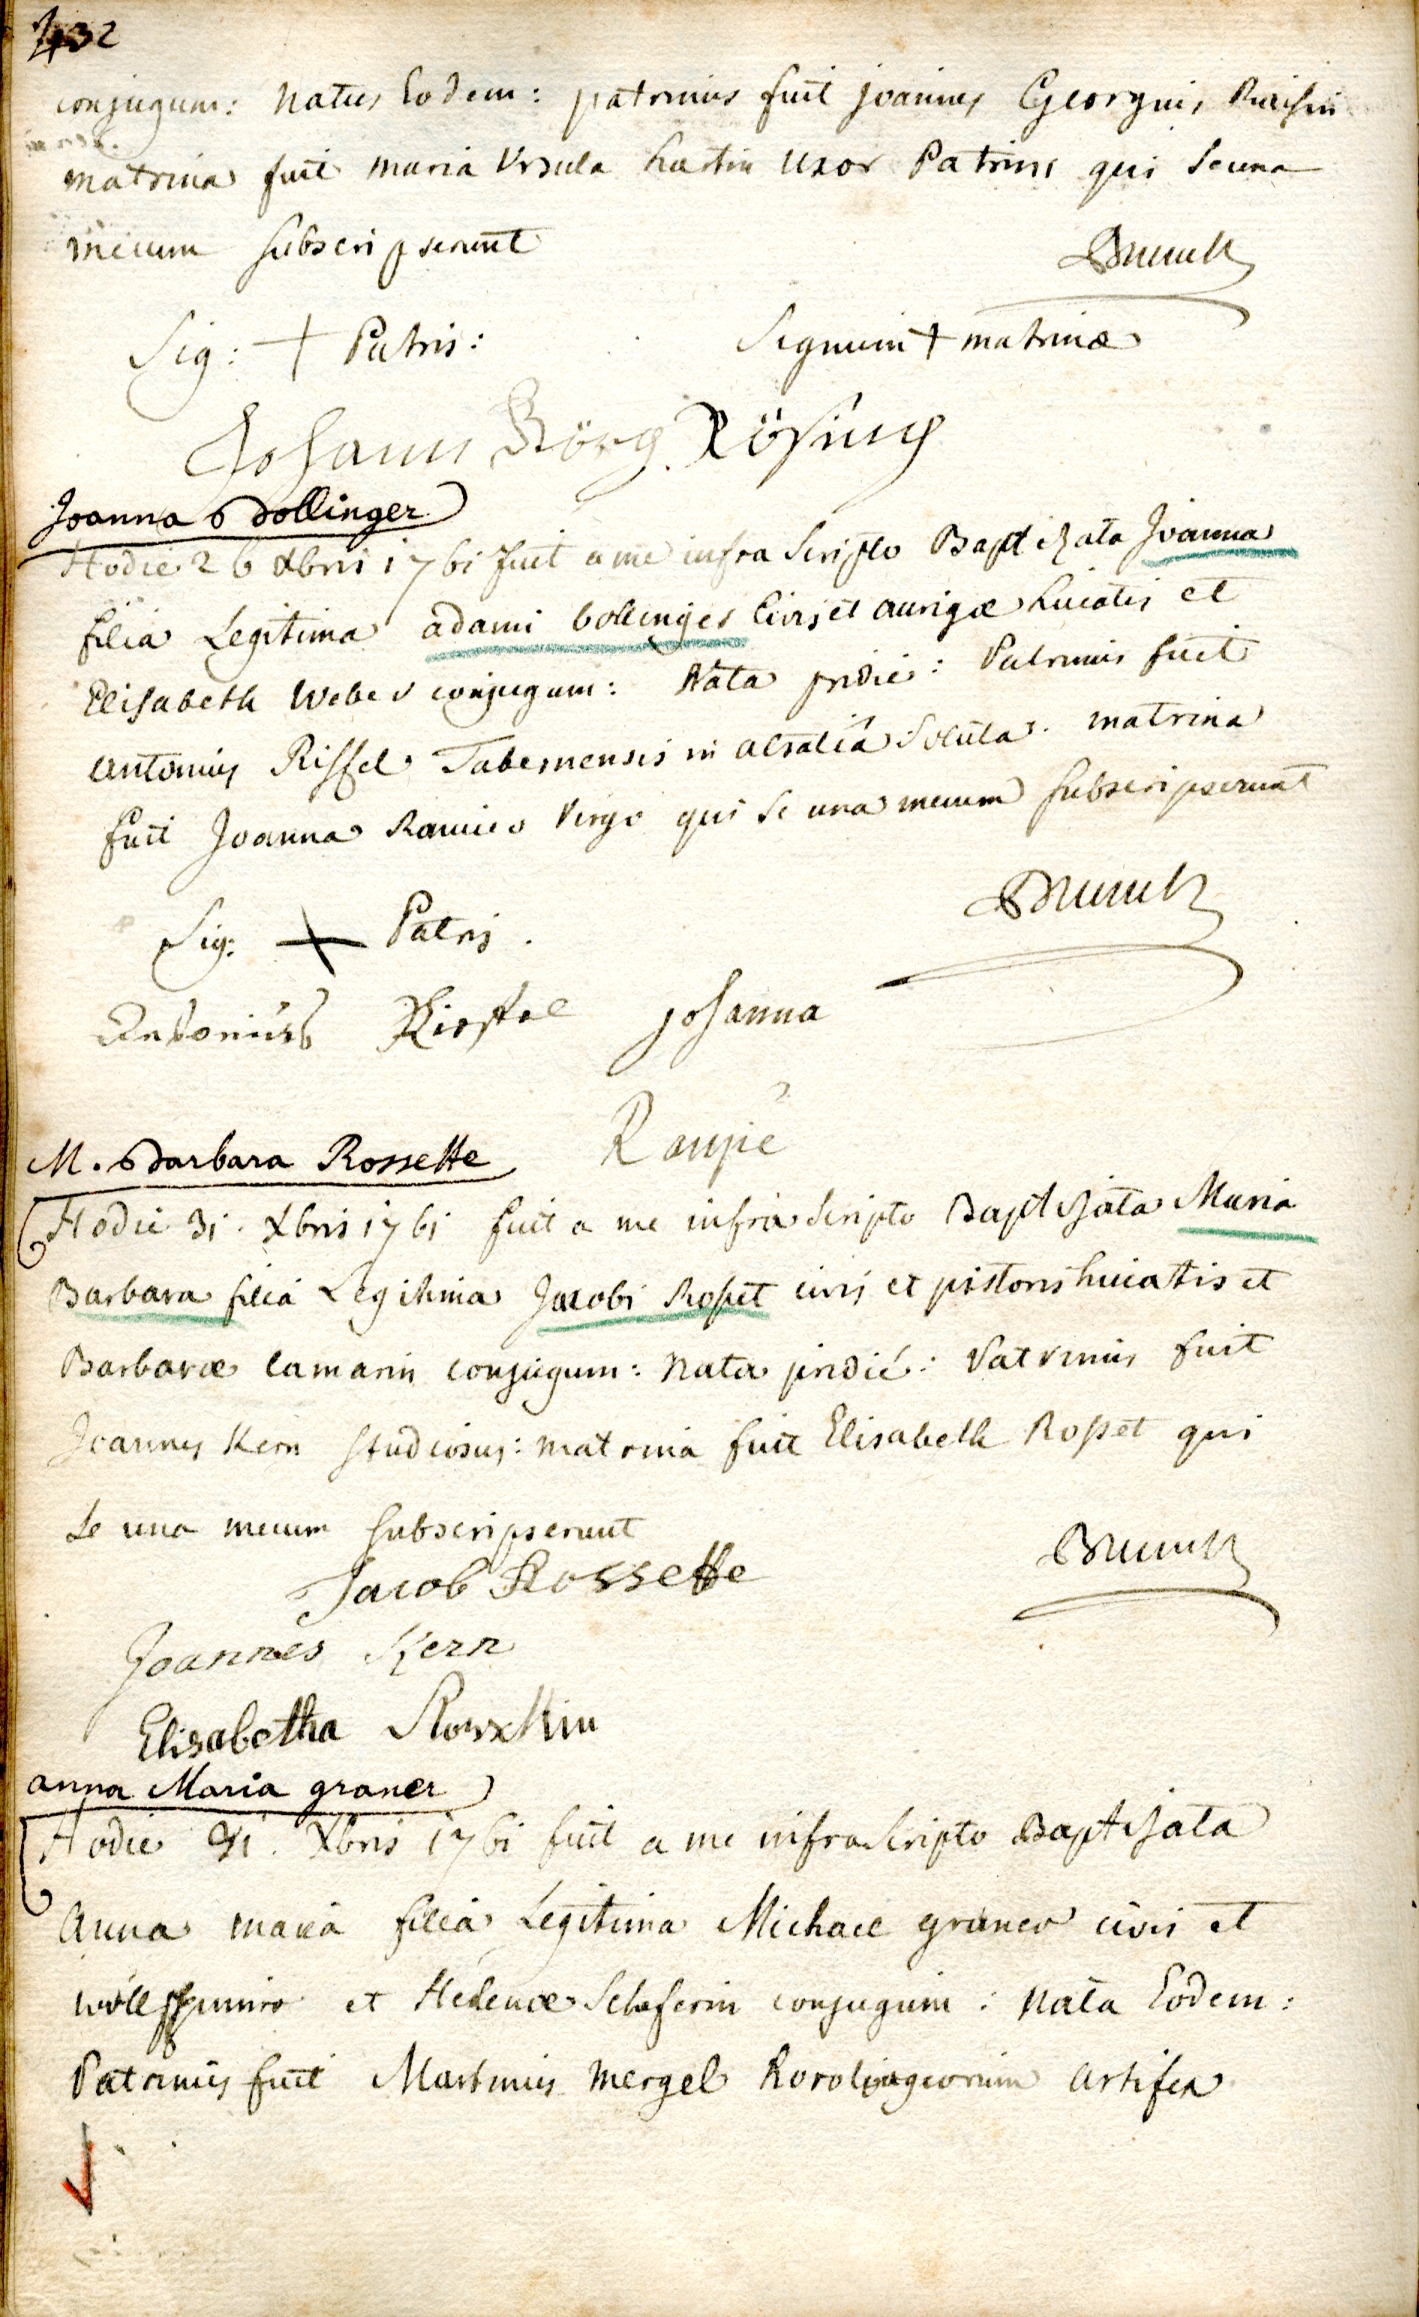 432
conjugum: natus Eodem: patrinus fuit joannes Georgius
matrina fuit maria Ursula hartin uxor Patrini qui se una
mecum subscripserunt
Brunck
Sig: + Patris: Signum + matrinæ
Johann Görg Rösing
Joanna Bollinger
Hodie 26 Xbris 1761 fuit a me infra scripto Baptizata Joanna
filia Legitima adami bollinger Civis et aurigæ huiatis et
Elisabeth Weber conjugum: Nata pridie: Patrinus fuit
antonius Riffel Tabernensis in alsatiâ solutus. matrina
fuit Joanna virgo qui se una mecum subscripserunt
Brunck
Sig: + Patris.
Antonius johanna
Raupie
M. Barbara Rossette
Hodie 31. Xbris 1761 fuit a me infra scripto Baptisata Maria
Barbara filia Legitima Jacobi Rosset civis et pistoris huiatis et
Barbaræ lamarin conjugum: nata pridie: Patrinus fuit
Joannes Kern studiosus: matrina fuit Elisabeth Rosset qui
se una mecum subscripserunt
Brunck
Jacob Rossette
Joannes Kern
Elisabetha
anna Maria graner
Hodie 31. Xbris 1761 fuit a me infra scripto Baptisata
Anna maria filia Legitima Michael graner civis et
et Helenæ Scheferin conjugum: nata Eodem:
Patrinus fuit Martinus mergel artifex